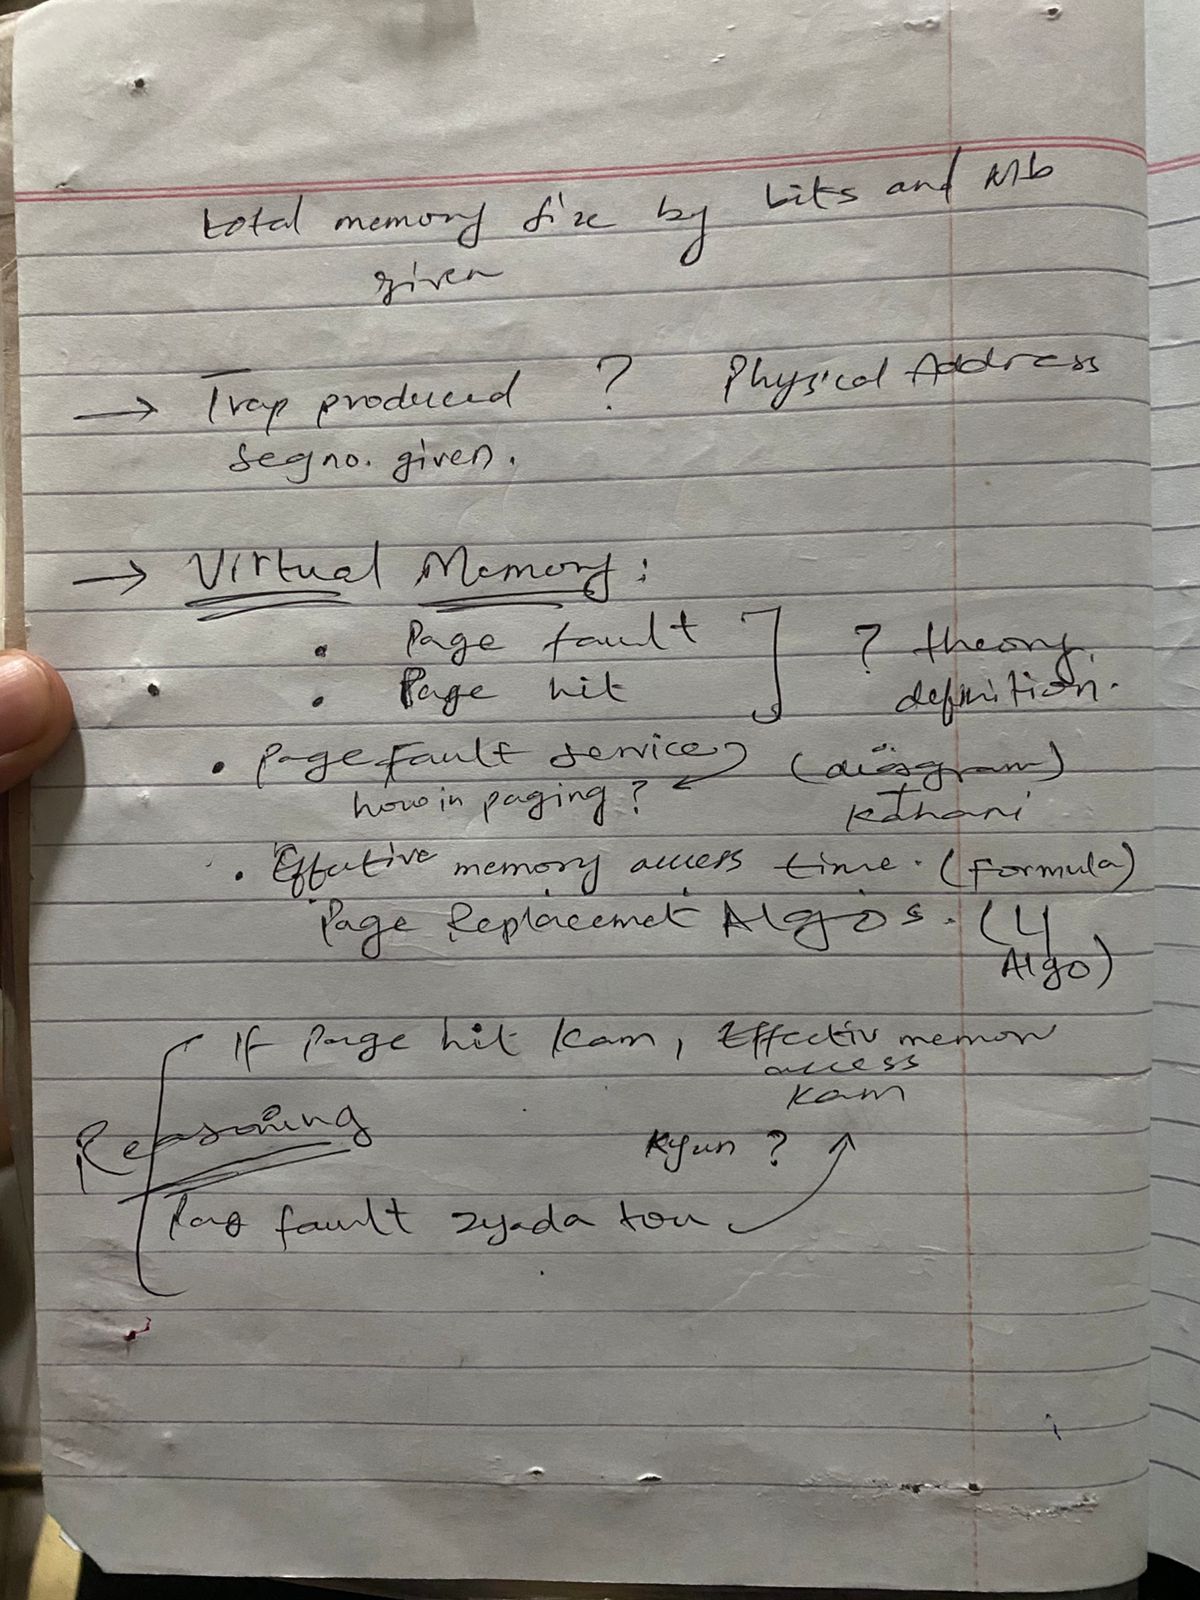 total memory size by bits and Mb
given
→ Trap produced ? Physical Address
seg no. given.
→ Virtual Memory:
• Page fault ] ? theory,
• Page hit definition.
• Page Fault service (diagram)
how in paging? ← Kahani
• Effective memory access time. (Formula)
Page Replacemet Algos. (4
Algo)
If Page hit kam, Effectiv memor
access
kam
Reasoning
Kyun ?
fault zyada tou